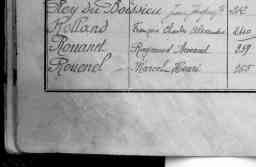 Rey du Boissieu Jean
Rolland François Charles Alexandre 240
Romanet Raymond Armand 259
Rouenel Marcel Henri 265